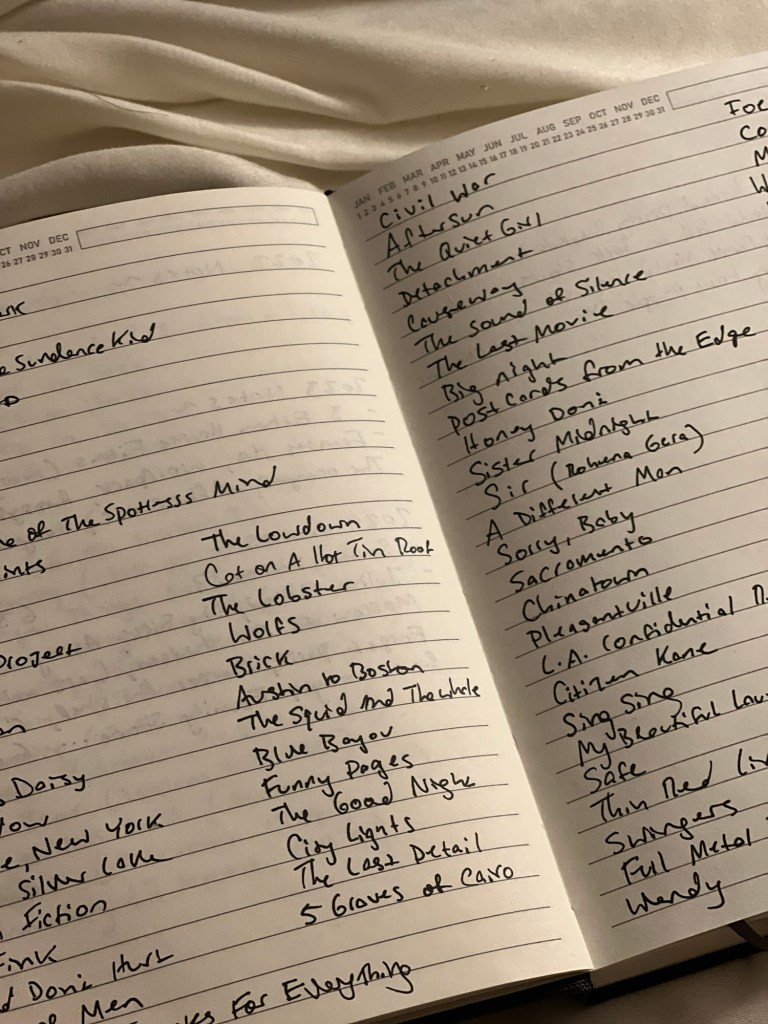 CT NOV DEC
26 27 28 29 30 31
Sundance Kid
of The Spotlesss Mind
Project
Daisy
, New York
Silver Lake
Fiction
Fink
Don't Hurt
Men
For Everything
The Lowdown
Cat on A Hot Tin Roof
The Lobster
Wolfs
Brick
Austin to Boston
The Squid And The whale
Blue Bayou
Funny Pages
The Good Night
City Lights
The Last Detail
5 Graves of Cairo
JAN FEB MAR APR MAY JUN JUL AUG SEP OCT NOV DEC
1 2 3 4 5 6 7 8 9 10 11 12 13 14 15 16 17 18 19 20 21 22 23 24 25 26 27 28 29 30 31
Civil War
AfterSun
The Quiet Girl
Detachment
Causeway
The Sound of Silence
The Last Movie
Big night
Postcards from the Edge
Honey Don't
Sister Midnight
Sir (Rohena Gera)
A Different Man
Sorry, Baby
Sacramento
Chinatown
Pleasentville
L.A. Confidential
Citizen Kane
Sing Sing
My Beautiful
Safe
Thin Red
Swingers
Full Metal
Wendy